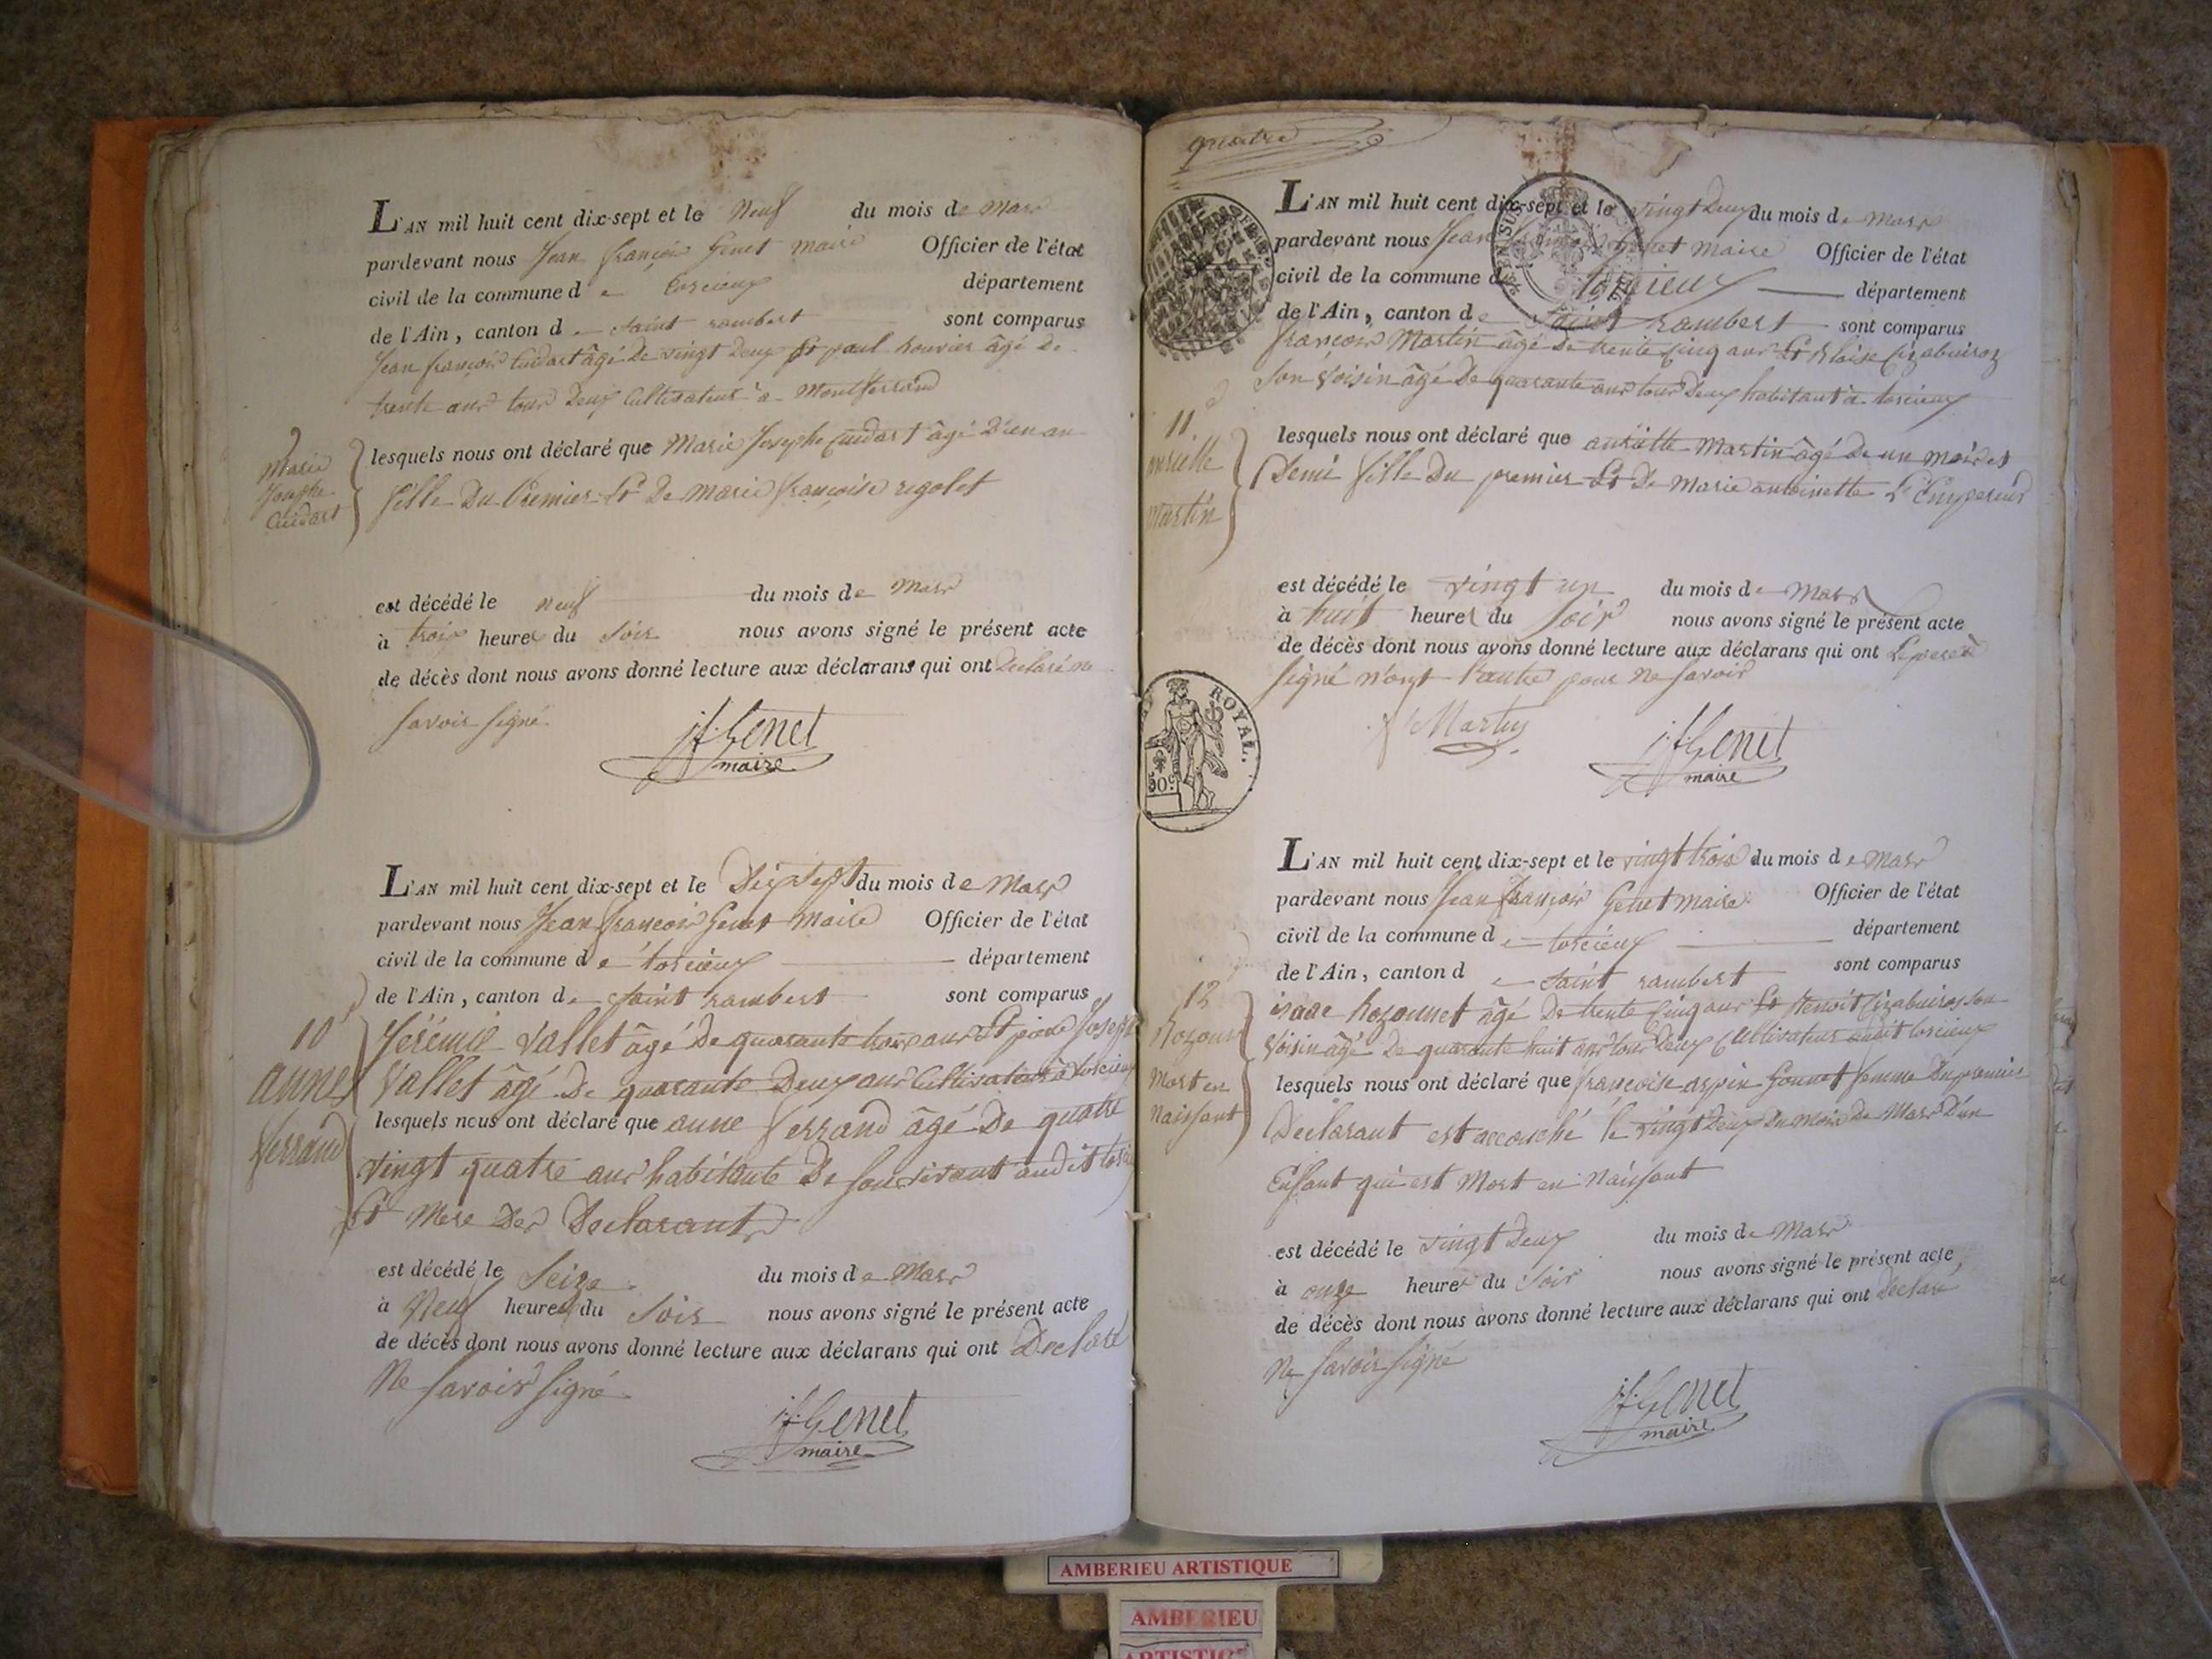 L'AN mil huit cent dix-sept et le Neuf du mois de Mars
pardevant nous Jean françois Genet maire Officier de l'état
civil de la commune de torcieux département
de l'Ain, canton de Saint rambert sont comparus
Jean françois Cuidart âgé De vingt Deux Et paul bouvier âgé De
trente ans tous Deux Cultivateurs à Montferrand
Marie
Josephe
Cuidart
lesquels nous ont déclaré que Marie Josephe Cuidart âgé D'un an
fille Du Premier Et De marie françoise regolet
est décédé le neuf du mois de Mars
à trois heures du Soir nous avons signé le présent acte
de décès dont nous avons donné lecture aux déclarans qui ont Declaré ne
savoir signé
jf Genet
maire
L'AN mil huit cent dix-sept et le Dix Sept du mois de Mars
pardevant nous Jean françois Genet Maire Officier de l'état
civil de la commune de torcieux département
de l'Ain, canton de Saint rambert sont comparus
10
anne
ferrand
Jérémie Vallet âgé De quarante trois ans Et Joseph
Vallet âgé De quarante Deux ans Cultivateurs à torcieux
lesquels nous ont déclaré que anne ferrand âgé De quatre
vingt quatre ans habitante De son vivant audit
Et Mere Des Declarants
est décédé le Seize du mois de Mars
à Neuf heures du Soir nous avons signé le présent acte
de décès dont nous avons donné lecture aux déclarans qui ont Declaré
Ne savoir signé
jf Genet
maire
quatre
L'AN mil huit cent dix-sept et le vingt Deux du mois de Mars
pardevant nous Jean françois Genet Maire Officier de l'état
civil de la commune de torcieux département
de l'Ain, canton de Saint rambert sont comparus
françois Martin âgé De trente Cinq ans Et Blaise Cizabuiroz
Son Voisin âgé De quarante ans tous Deux habitant à torcieux
11
auriette
Martin
lesquels nous ont déclaré que auriette Martin âgé De un mois et
Demi fille Du premier Et De Marie antoinette L'Empereur
est décédé le vingt un du mois de Mars
à huit heures du Soir nous avons signé le présent acte
de décès dont nous avons donné lecture aux déclarans qui ont Le pere
signé n'ont l'autre pour Ne Savoir
ROYAL.
50 c
Martin
jf Genet
maire
L'AN mil huit cent dix-sept et le vingt trois du mois de Mars
pardevant nous Jean François Genet maire Officier de l'état
civil de la commune de torcieux département
de l'Ain, canton de Saint rambert sont comparus
12
Mort en
Naissant
isaac hozonnet âgé De trente Cinq ans Et Benoit Cizabuiroz son
Voisin âgé De quarante huit ans tous Deux Cultivateurs audit torcieux
lesquels nous ont déclaré que françoise arpin Gonnet femme Du premier
Declarant est accouché le vingt Deux Du Mois De Mars D'un
Enfant qui est Mort en Naissant
est décédé le vingt Deux du mois de Mars
à onze heures du Soir nous avons signé le présent acte
de décès dont nous avons donné lecture aux déclarans qui ont Declaré
Ne Savoir Signé
jf Genet
maire
AMBERIEU ARTISTIQUE
AMBERIEU
ARTISTIQUE